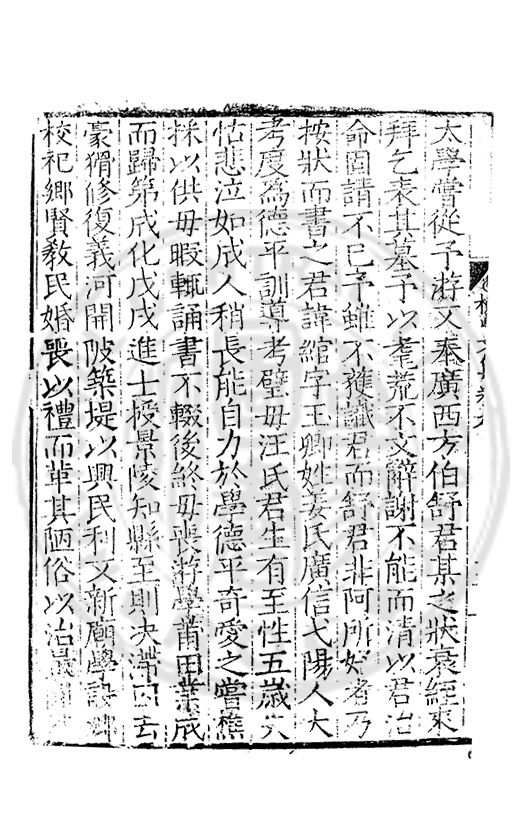 太學嘗從予游又奉廣西方伯舒君某之狀衰絰來
拜乞表其墓予以耄荒不文辭謝不能而清以君治
命固請不已予雖不獲識君而舒君非阿所好者乃
按狀而書之君諱綰字玉卿姓姜氏廣信弋陽人大
考度為德平訓導考璧母汪氏君生有至性五歲失
怙悲泣如成人稍長能自力於學德平奇愛之嘗樵
採以供母暇輒誦書不輟後終母喪游學莆田業成
而歸第成化戊戌進士授景陵知縣至則決滯囚去
豪猾修復義河開陂築堤以興民利又新廟學設
校祀鄉賢教民婚喪以禮而革其陋俗以治最